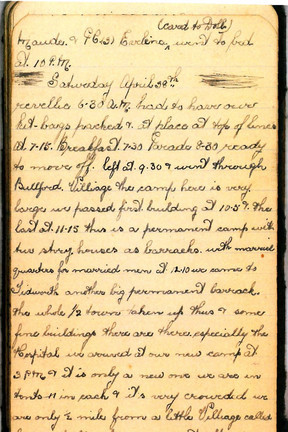 (card to Doll)
Maude. & P.C.(3) Evelina, went to bed
at 10 P.M.
Saturday April 28th
reveille 6-30 A.M. had to have our
kit-bags packed & at place at top of lines
at 7-15. Breakfast 7-30 Parade 8-30 ready
to move off. left at 9.30 & went through
Bulford. Village the camp here is very
large we passed first building at 10.5 & the
last at 11-15 this is a permanent camp with
two story houses as barracks. with married
quarters for married men at 12.10 we came to
Tidworth another big permanent barrack.
the whole 1/2 town taken up thus & some
fine buildings there are there, especially the
Hospital we arrived at our new camp at
2 P.M & it is only a new one we are in
tents 11 in each & it's very crowded we
are only 1/2 mile from a little Village called